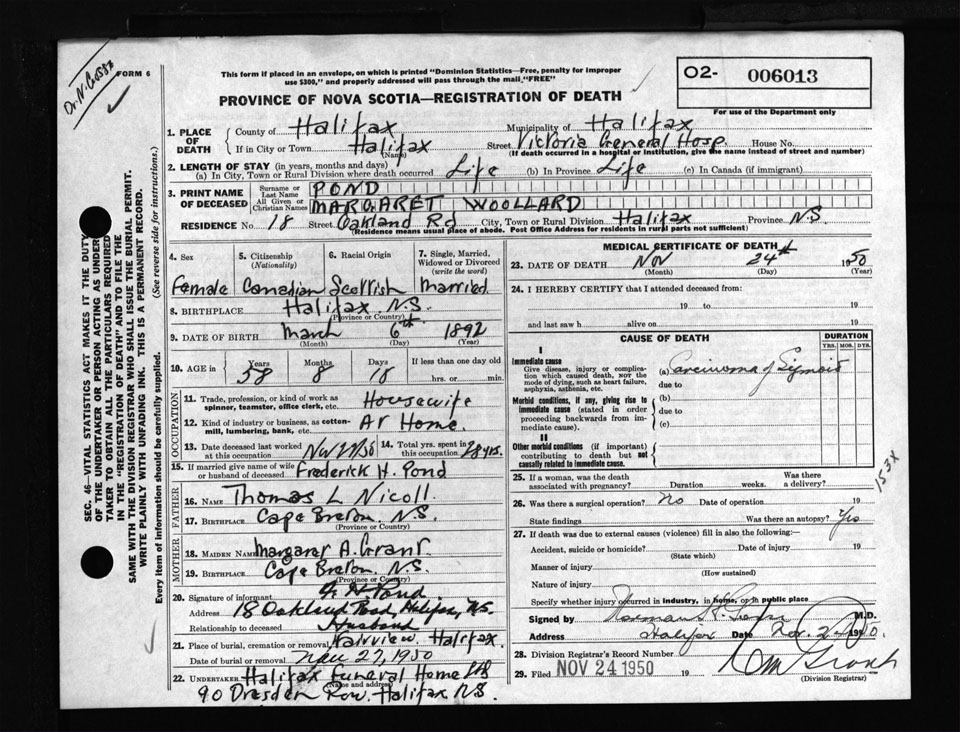 Dr. N. Gosse
FORM 6
This form if placed in an envelope, on which is printed "Dominion Statistics—Free, penalty for improper
use $300," and properly addressed will pass through the mail, "FREE"
PROVINCE OF NOVA SCOTIA—REGISTRATION OF DEATH
O2- 006013
For use of the Department only
1. PLACE OF DEATH { County of Halifax Municipality of Halifax
If in City or Town Halifax (Name) Street Victoria General Hosp. House No.
(If death occurred in a hospital or institution, give the name instead of street and number)
2. LENGTH OF STAY (in years, months and days)
(a) In City, Town or Rural Division where death occurred Life (b) In Province Life (c) In Canada (if immigrant)
3. PRINT NAME OF DECEASED { Surname or Last Name POND
All Given or Christian Names MARGARET WOOLLARD
RESIDENCE No. 18 Street Oakland Rd City, Town or Rural Division Halifax Province N.S.
(Residence means usual place of abode. Post Office Address for residents in rural parts not sufficient)
4. Sex 5. Citizenship (Nationality) 6. Racial Origin 7. Single, Married, Widowed or Divorced (write the word)
Female Canadian Scottish Married
8. BIRTHPLACE Halifax N.S.
(Province or Country)
9. DATE OF BIRTH March 6th 1892
(Month) (Day) (Year)
10. AGE in { Years 58 Months 8 Days 18 If less than one day old
hrs. or min.
OCCUPATION
11. Trade, profession, or kind of work as spinner, teamster, office clerk, etc. Housewife
12. Kind of industry or business, as cotton-mill, lumbering, bank, etc. At Home.
13. Date deceased last worked at this occupation 14. Total yrs. spent in this occupation 28 yrs.
15. If married give name of wife or husband of deceased Frederick H. Pond
FATHER
16. NAME Thomas L Nicoll
17. BIRTHPLACE Cape Breton, N.S.
(Province or Country)
MOTHER
18. MAIDEN NAME Margaret A. Grant.
19. BIRTHPLACE Cape Breton. N.S.
(Province or Country)
20. Signature of informant F. H. Pond.
Address 18 Oakland Road, Halifax, N.S.
Relationship to deceased Husband
21. Place of burial, cremation or removal Fairview, Halifax
Date of burial or removal Nov 27, 1950
22. UNDERTAKER Halifax Funeral Home Ltd
(Name and address)
90 Dresden Row. Halifax N.S.
MEDICAL CERTIFICATE OF DEATH
23. DATE OF DEATH Nov 24th 1950
(Month) (Day) (Year)
24. I HEREBY CERTIFY that I attended deceased from:
19 to 19
and last saw h alive on 19
CAUSE OF DEATH
DURATION
YRS. MOS. DYS.
I
Immediate cause
Give disease, injury or complication which caused death, NOT the mode of dying, such as heart failure, asphyxia, asthenia, etc.
(a) Carcinoma of Sigmoid
due to
Morbid conditions, if any, giving rise to immediate cause (stated in order proceeding backwards from immediate cause).
(b)
due to
(c)
II
Other morbid conditions (if important) contributing to death but not causally related to immediate cause.
153X
25. If a woman, was the death associated with pregnancy? Duration weeks. Was there a delivery?
26. Was there a surgical operation? No Date of operation 19
State findings Was there an autopsy? Yes
27. If death was due to external causes (violence) fill in also the following:—
Accident, suicide or homicide? Date of injury 19
(State which)
Manner of injury
(How sustained)
Nature of injury
Specify whether injury occurred in industry, in home, or in public place
Signed by Norman M.D.
Address Halifax Date 1950.
28. Division Registrar's Record Number
29. Filed NOV 24 1950 19
(Division Registrar)
SEC. 46—VITAL STATISTICS ACT MAKES IT THE DUTY
OF THE UNDERTAKER OR PERSON ACTING AS UNDER-
TAKER TO OBTAIN ALL THE PARTICULARS REQUIRED
IN THE "REGISTRATION OF DEATH" AND TO FILE THE
SAME WITH THE DIVISION REGISTRAR WHO SHALL ISSUE THE BURIAL PERMIT.
WRITE PLAINLY WITH UNFADING INK. THIS IS A PERMANENT RECORD.
Every item of information should be carefully supplied. (See reverse side for instructions.)